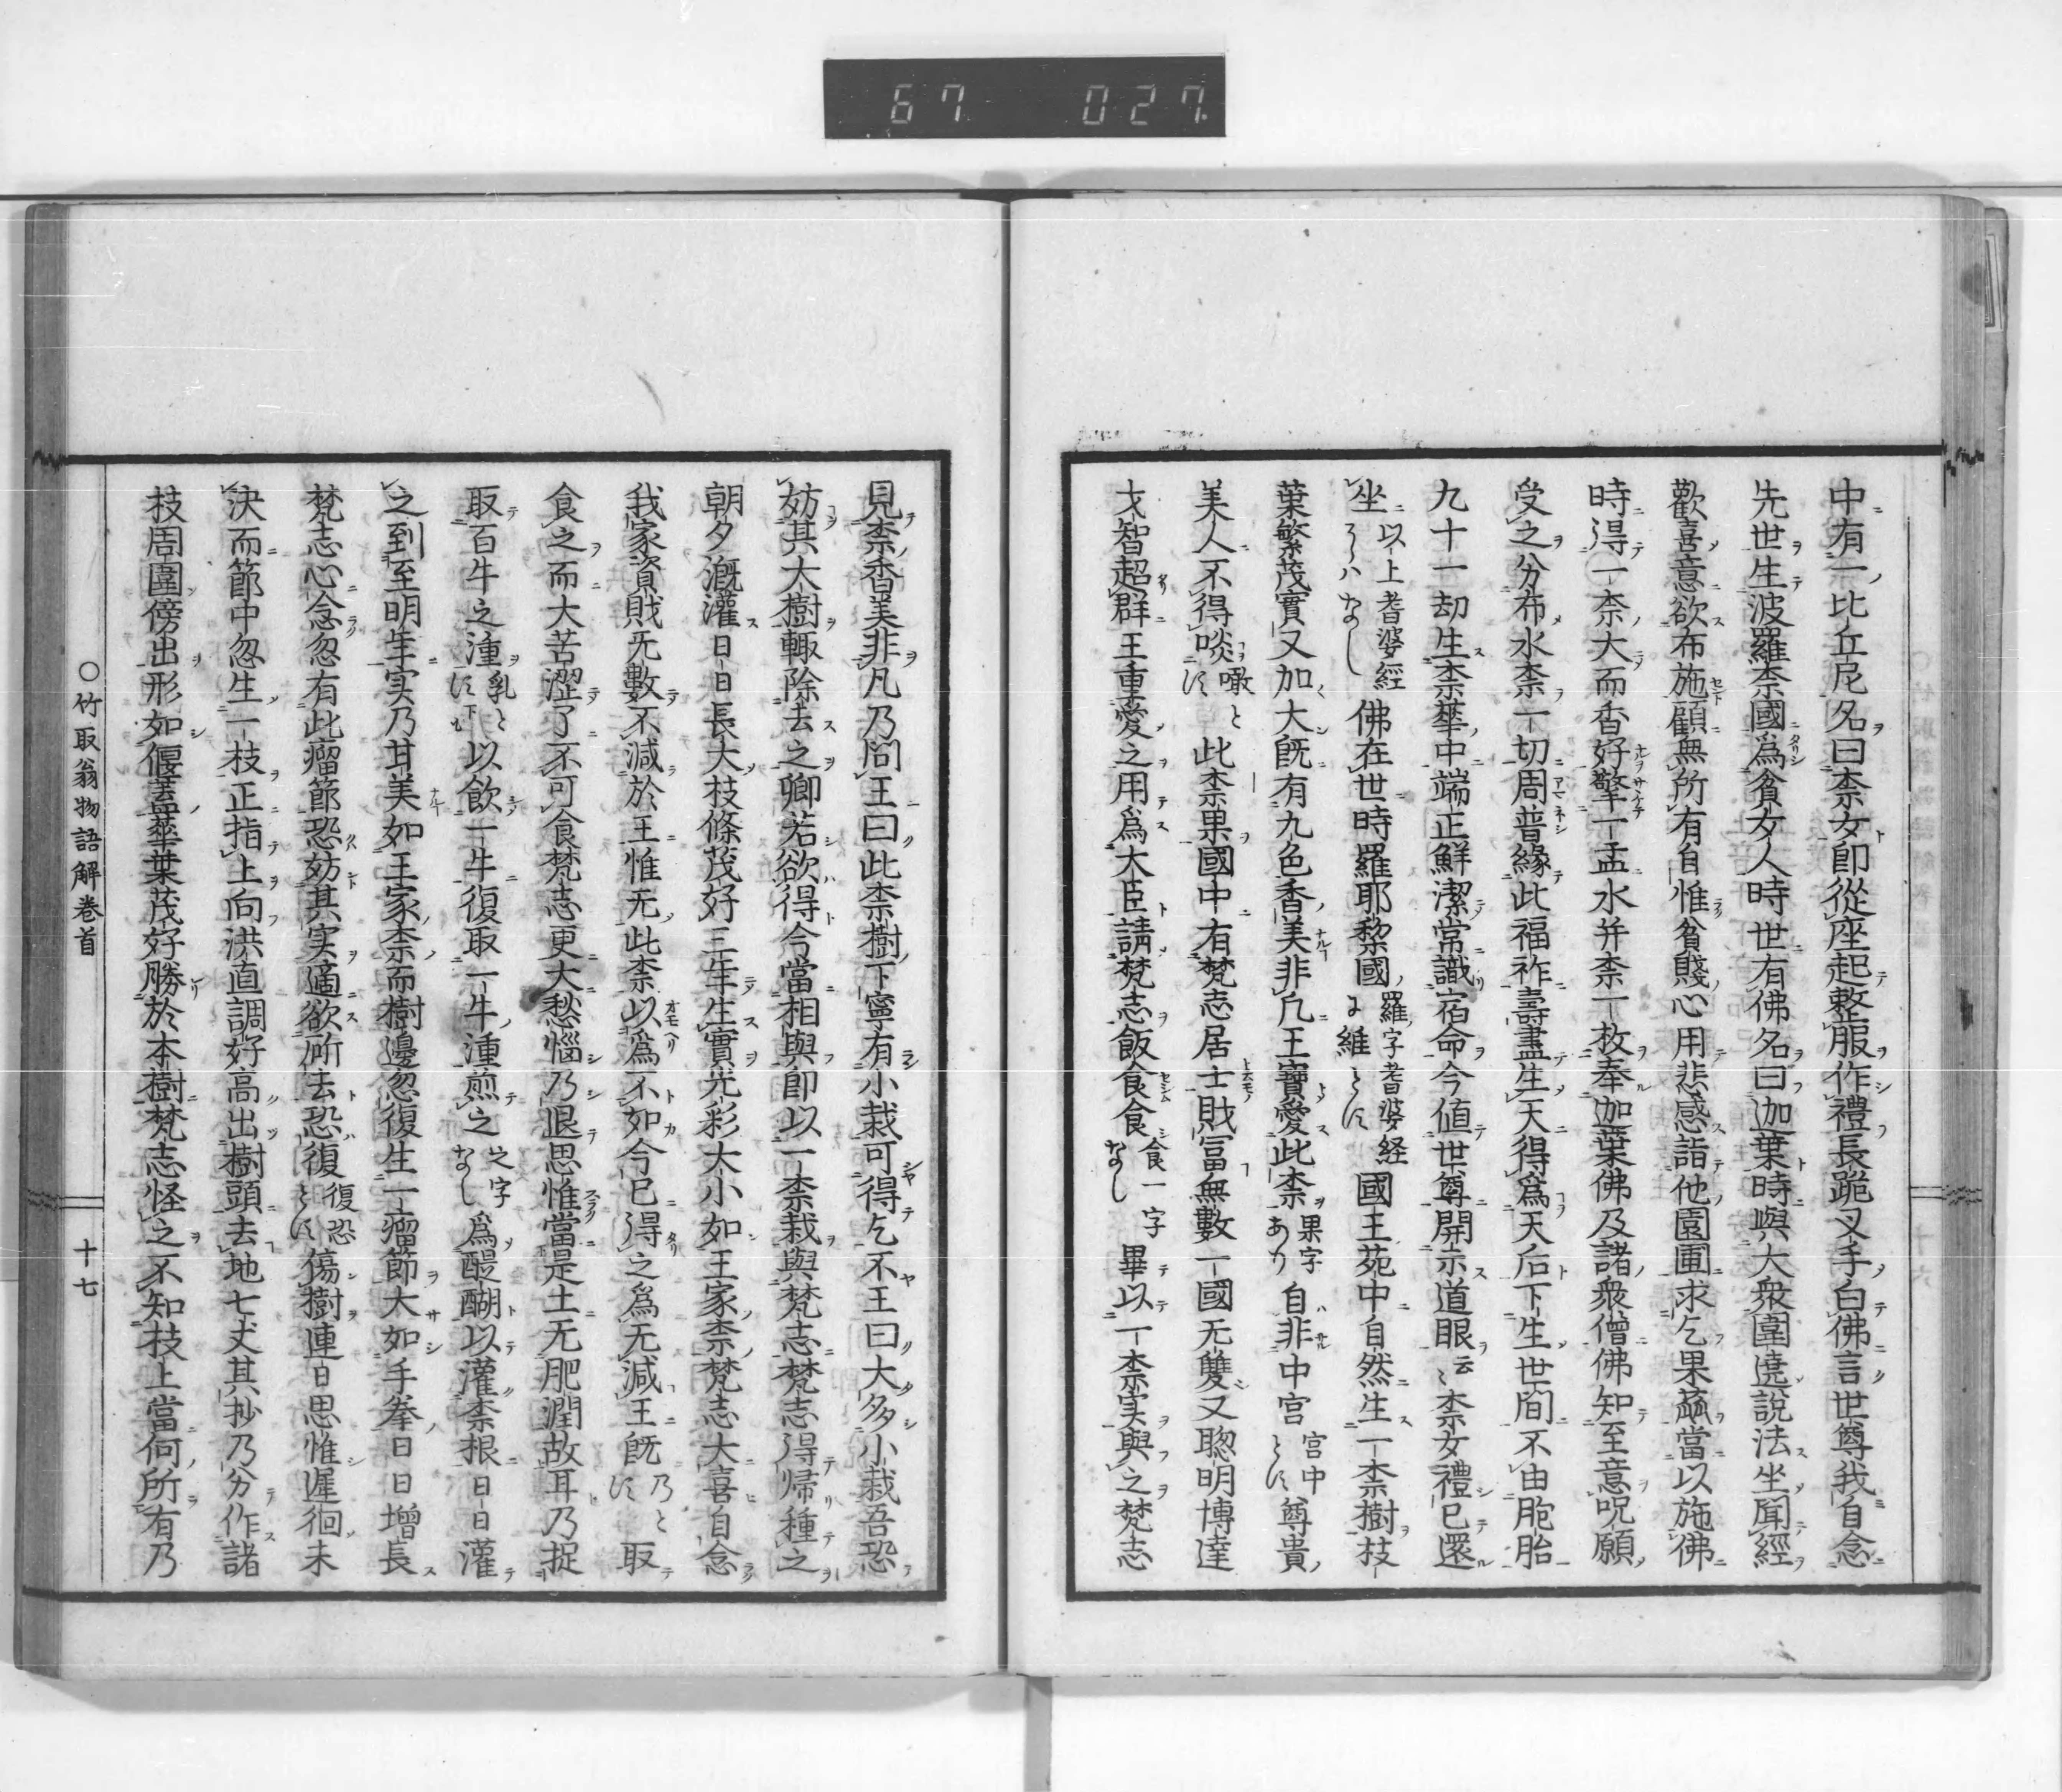 67 027
中有一比丘尼名曰柰女卽從座起整服作禮長跪叉手白佛言世尊我自念
先世生波羅柰國爲貧女人時世有佛名曰迦葉時與大衆圍遶說法坐聞經
歡喜意欲布施顧無所有自惟貧賤心用悲感詣他園圃求乞果蓏當以施佛
時得一柰大而香好擎一盂水并柰一枚奉迦葉佛及諸衆僧佛知至意呪願
受之分布水柰一切周普緣此福祚壽盡生天得爲天后下生世間不由胞胎
九十一劫生柰華中端正鮮潔常識宿命今値世尊開示道眼云〻柰女禮已還
坐以上耆婆經うらハなし佛在世時羅耶黎國羅字耆婆経よ維とに國王苑中自然生一柰樹枝
葉繁茂實又加大旣有九色香美非凡王寶愛此柰果字あり自非中宮宮中とに尊貴
美人不得啖噉とに此柰果國中有梵志居士財冨無數一國无雙又聰明博達
才智超群王重愛之用爲大臣請梵志飯食食食一字なし畢以一柰実與之梵志
見柰香美非凡乃問王曰此柰樹下寧有小栽可得乞不王曰大多小栽吾恐
妨其大樹輙除去之卿若欲得今當相與卽以一柰栽與梵志梵志得帰種之
朝夕漑灌日日長大枝條茂好三年生實光彩大小如王家柰梵志大喜自念
我家資財无數不減於王惟无此柰以爲不如今已得之爲无減王旣乃とに取
食之而大苦澀了不可食梵志更大愁惱乃退思惟當是土无肥潤故耳乃捉
取百牛之湩乳とに下も以飲一牛復取一牛湩煎之之字なし爲醍醐以灌柰根日日灌
之到至明年実乃甘美如王家柰而樹邊忽復生一瘤節大如手拳日日增長
梵志心念忽有此瘤節恐妨其実適欲斫去恐復復恐とに傷樹連日思惟遲徊未
決而節中忽生一枝正指上向洪直調好高出樹頭去地七丈其抄乃分作諸
枝周圍傍出形如偃蓋華葉茂好勝於本樹梵志怪之不知枝上當何所有乃
〇竹取翁物語解卷首 十七